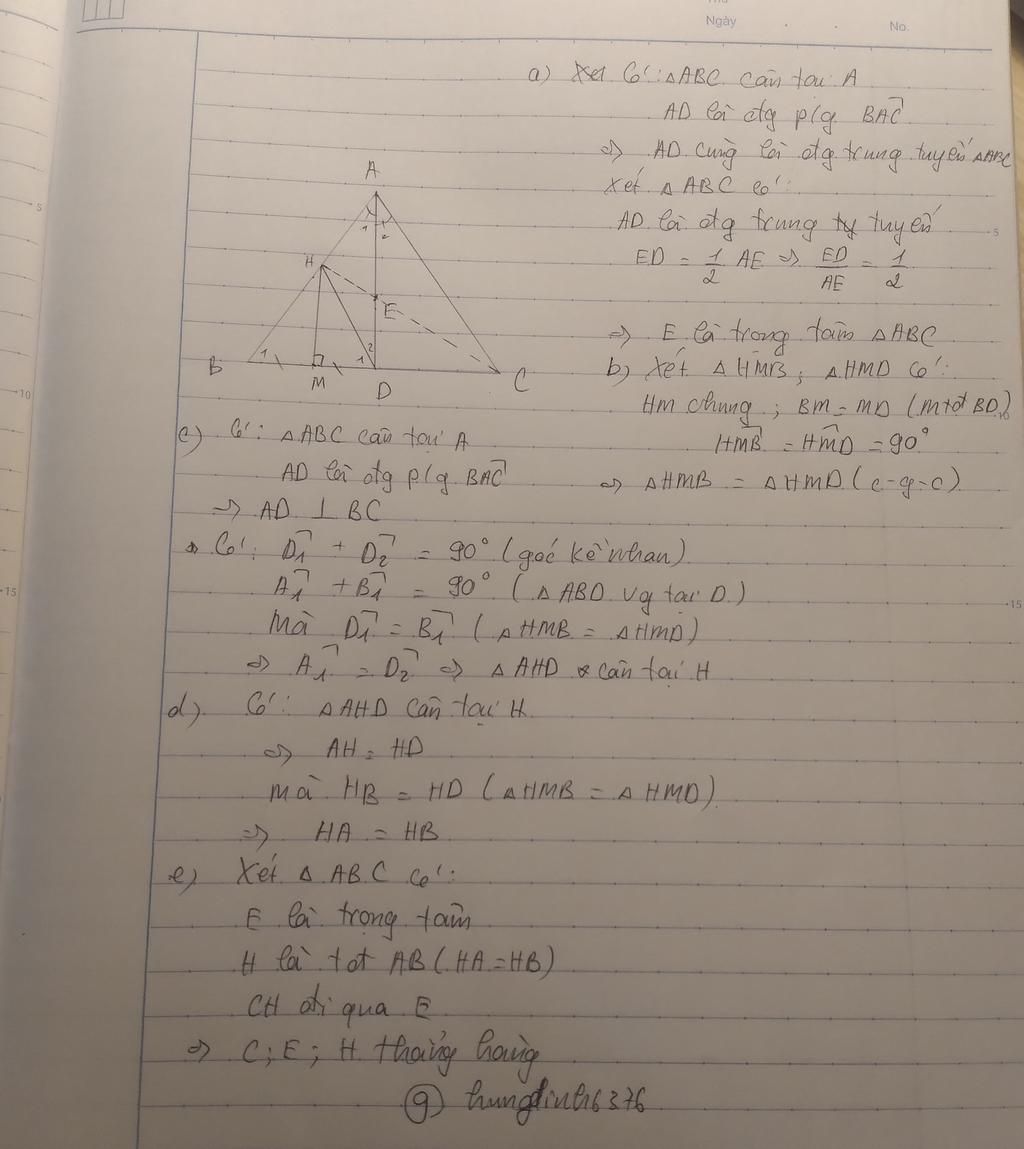 Thứ
Ngày . . No.
a) Xét Có: △ABC cân tại A
AD là đtg p/g BAC
=> AD cũng là đtg trung tuyến △ABC
Xét △ABC có:
AD là đtg trung ty tuyến
ED = 1/2 AE => ED/AE = 1/2
=> E là trọng tâm △ABC
b) Xét △HMB; △HMD có:
HM chung; BM = MD (M tđ BD)
HMB = HMD = 90°
=> △HMB = △HMD (c-g-c)
A
1 2
H
E
B 1 1 2
M D C
c) Có: △ABC cân tại A
AD là đtg p/g BAC
=> AD ⊥ BC
Có: D1 + D2 = 90° (góc kề nhau)
A1 + B1 = 90° (△ABD vg tại D)
Mà D1 = B1 (△HMB = △HMD)
=> A1 = D2 => △AHD cân tại H
d) Có: △AHD cân tại H
=> AH = HD
mà HB = HD (△HMB = △HMD)
=> HA = HB
e) Xét △ABC có:
E là trọng tâm
H là tđt AB (HA = HB)
CH đi qua E
=> C; E; H thẳng hàng
g) hungdinh6376
5
10
15
5
10
15